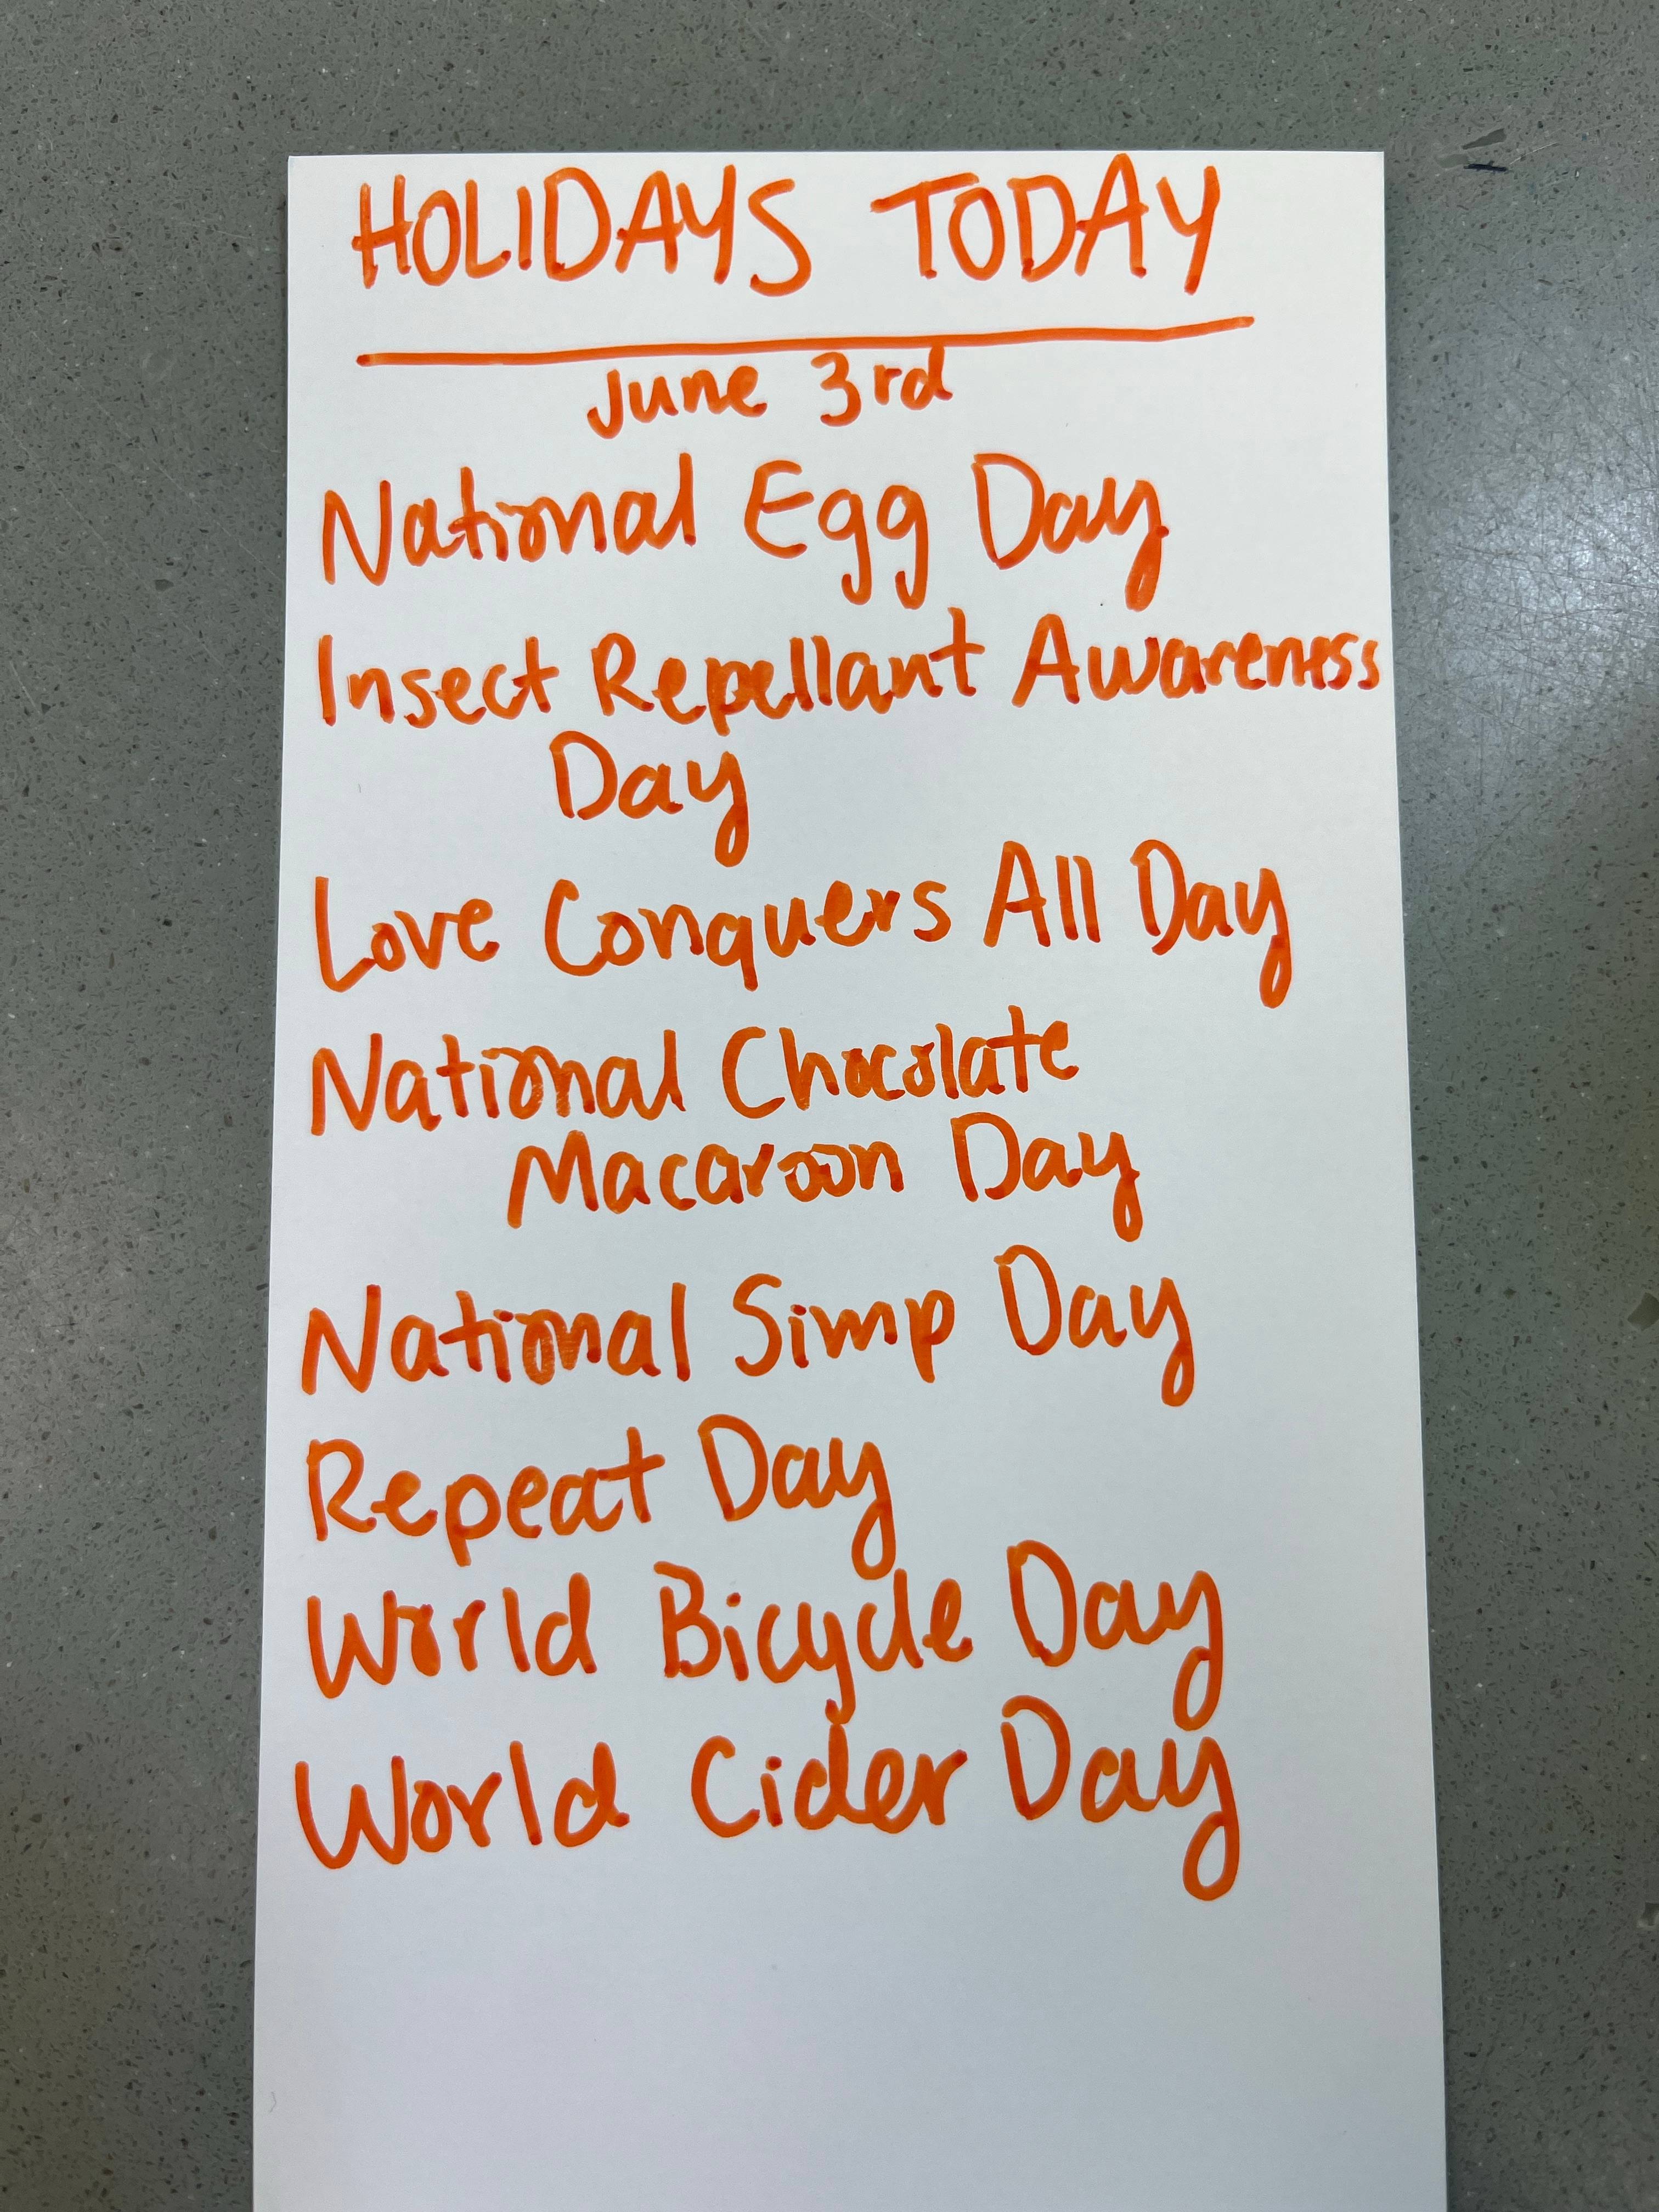 HOLIDAYS TODAY
June 3rd
National Egg Day
Insect Repellant Awareness
Day
Love Conquers All Day
National Chocolate
Macaroon Day
National Simp Day
Repeat Day
World Bicycle Day
World Cider Day